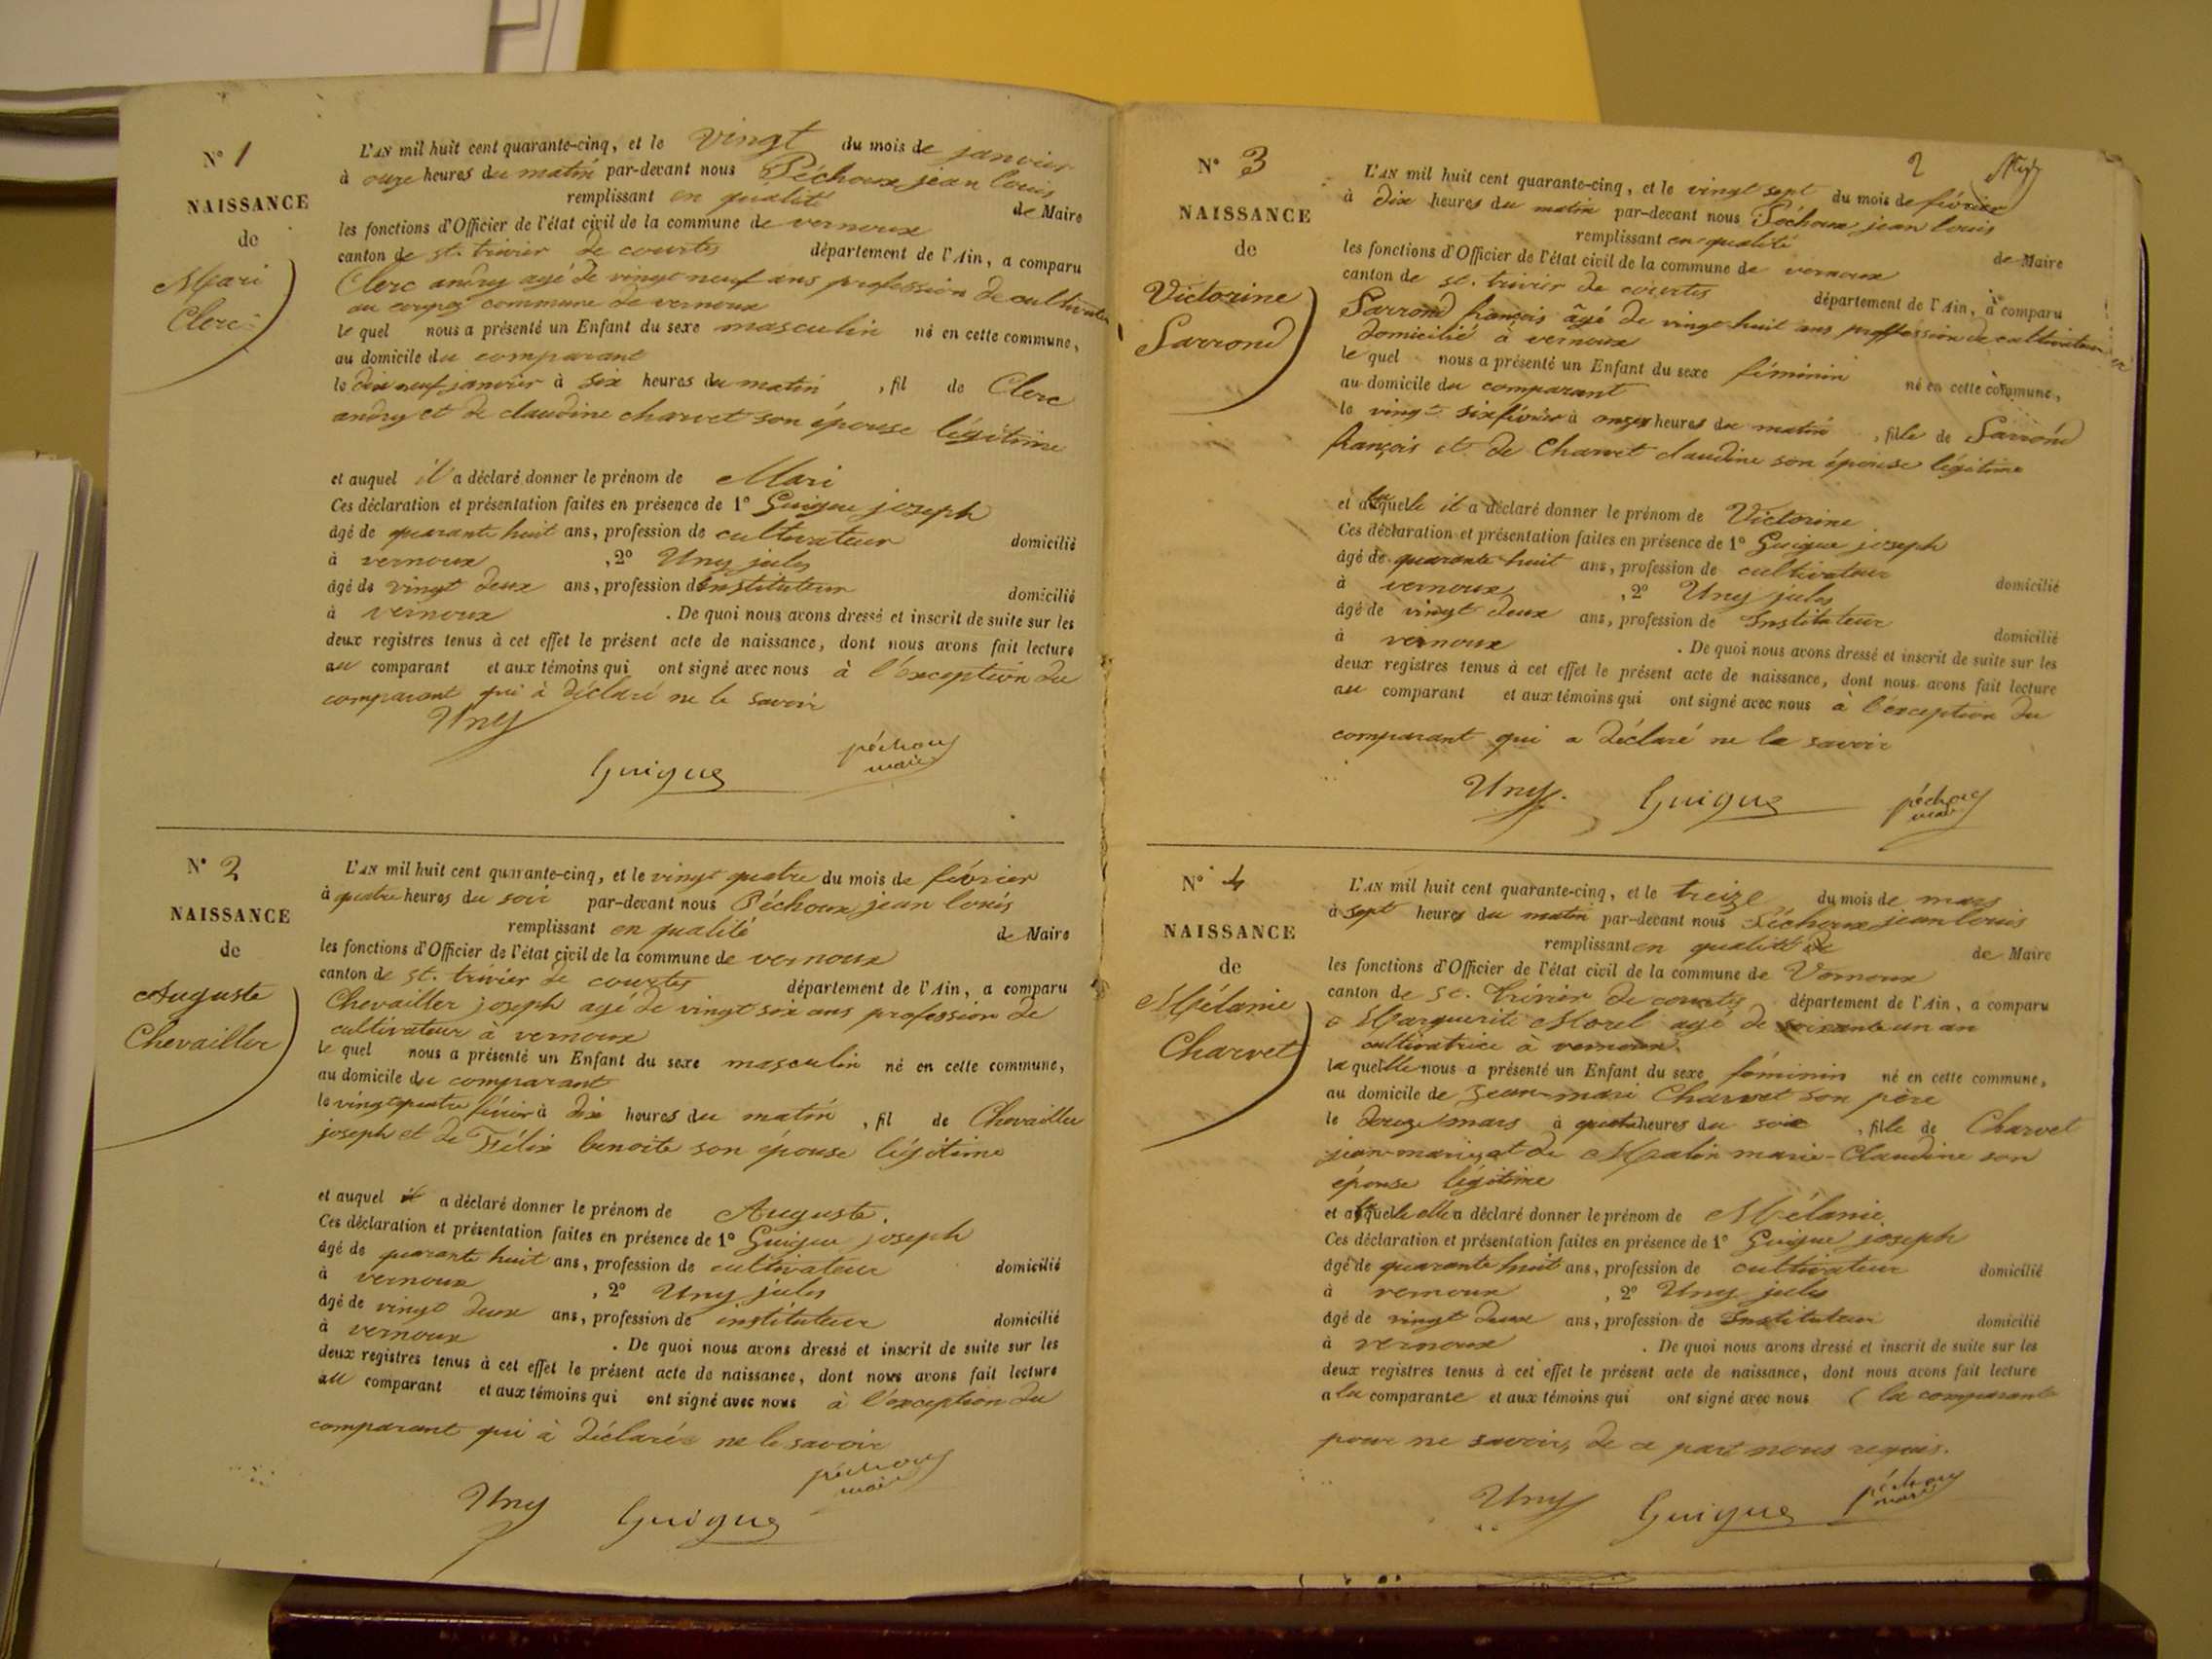 N° 1
NAISSANCE
de
Mari
Clerc
L'AN mil huit cent quarante-cinq, et le vingt du mois de janvier
à onze heures du matin par-devant nous Péchoux jean louis
remplissant en qualité de Maire
les fonctions d'Officier de l'état civil de la commune de vernoux
canton de st. trivier de courtes département de l'Ain, a comparu
Clerc andry agé de vingt neuf ans profession de cultivateur
au commune de vernoux
le quel nous a présenté un Enfant du sexe masculin né en cette commune,
au domicile du comparant
le dix neuf janvier à six heures du matin, fil de Clerc
andry et de claudine charvet son épouse légitime
et auquel il a déclaré donner le prénom de Mari
Ces déclaration et présentation faites en présence de 1° Guigue joseph
âgé de quarante huit ans, profession de cultivateur domicilié
à vernoux, 2° Uny jules
âgé de vingt deux ans, profession d'instituteur domicilié
à vernoux. De quoi nous avons dressé et inscrit de suite sur les
deux registres tenus à cet effet le présent acte de naissance, dont nous avons fait lecture
au comparant et aux témoins qui ont signé avec nous à l'exception du
comparant qui à déclaré ne le savoir
Uny
Guigue
péchoux
maire
N° 2
NAISSANCE
de
Auguste
Chevailler
L'AN mil huit cent quarante-cinq, et le vingt quatre du mois de février
à quatre heures du soir par-devant nous Péchoux jean louis
remplissant en qualité de Maire
les fonctions d'Officier de l'état civil de la commune de vernoux
canton de st. trivier de courtes département de l'Ain, a comparu
Chevailler joseph agé de vingt six ans profession de
cultivateur à vernoux
le quel nous a présenté un Enfant du sexe masculin né en cette commune,
au domicile du comparant
le vingt quatre février à dix heures du matin, fil de Chevailler
joseph et de Félix benoite son épouse légitime
et auquel il a déclaré donner le prénom de Auguste.
Ces déclaration et présentation faites en présence de 1° Guigue joseph
âgé de quarante huit ans, profession de cultivateur domicilié
à vernoux, 2° Uny jules
âgé de vingt deux ans, profession de instituteur domicilié
à vernoux. De quoi nous avons dressé et inscrit de suite sur les
deux registres tenus à cet effet le présent acte de naissance, dont nous avons fait lecture
au comparant et aux témoins qui ont signé avec nous à l'exception du
comparant qui à déclaré ne le savoir
Uny
Guigue
péchoux
maire
2
N° 3
NAISSANCE
de
Victorine
Sarrond
L'AN mil huit cent quarante-cinq, et le vingt sept du mois de février
à dix heures du matin par-devant nous Péchoux jean louis
remplissant en qualité de Maire
les fonctions d'Officier de l'état civil de la commune de vernoux
canton de st. trivier de courtes département de l'Ain, a comparu
Sarrond françois âgé de vingt-huit ans proffession de cultivateur
domicilié à vernoux
le quel nous a présenté un Enfant du sexe féminin né en cette commune,
au domicile du comparant
le vingt-six février à onze heures du matin, fille de Sarrond
françois et de Charvet claudine son épouse légitime
et à laquelle il a déclaré donner le prénom de Victorine
Ces déclaration et présentation faites en présence de 1° Guigue joseph
âgé de quarante huit ans, profession de cultivateur domicilié
à vernoux, 2° Uny jules
âgé de vingt deux ans, profession de Instituteur domicilié
à vernoux. De quoi nous avons dressé et inscrit de suite sur les
deux registres tenus à cet effet le présent acte de naissance, dont nous avons fait lecture
au comparant et aux témoins qui ont signé avec nous à l'exception du
comparant qui a déclaré ne le savoir
Uny
Guigue
péchoux
maire
N° 4
NAISSANCE
de
Mélanie
Charvet
L'AN mil huit cent quarante-cinq, et le treize du mois de mars
à sept heures du matin par-devant nous Péchoux jean louis
remplissant en qualité de de Maire
les fonctions d'Officier de l'état civil de la commune de Vernoux
canton de st. trivier de courtes département de l'Ain, a comparu
Marguerite Morel agé de soixante un an
cultivatrice à vernoux.
laquelle nous a présenté un Enfant du sexe féminin né en cette commune,
au domicile de jean-mari Charvet son père
le douze mars à quatre heures du soir, fille de Charvet
jean-marie, et de Malin marie-Claudine son
épouse légitime
et à laquelle elle a déclaré donner le prénom de Mélanie
Ces déclaration et présentation faites en présence de 1° Guigue joseph
âgé de quarante huit ans, profession de cultivateur domicilié
à vernoux, 2° Uny jules
âgé de vingt deux ans, profession de Instituteur domicilié
à vernoux. De quoi nous avons dressé et inscrit de suite sur les
deux registres tenus à cet effet le présent acte de naissance, dont nous avons fait lecture
a la comparante et aux témoins qui ont signé avec nous (la comparante
pour ne savoir, de ce part nous requis.
Uny
Guigue
péchoux
maire